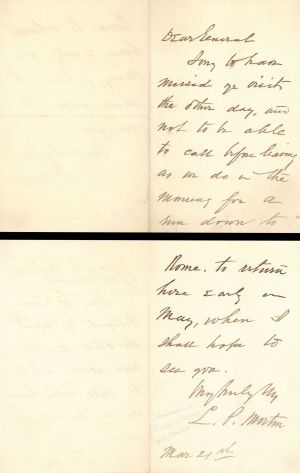 Dear General
Sorry to have
missed yr visit
the other day, and
not to be able
to call before leaving
as we do in the
morning for a
run down to
Rome. to return
here early in
May, when I
shall hope to
see you.
Very truly Yrs
L. P. Morton
Mar 21st